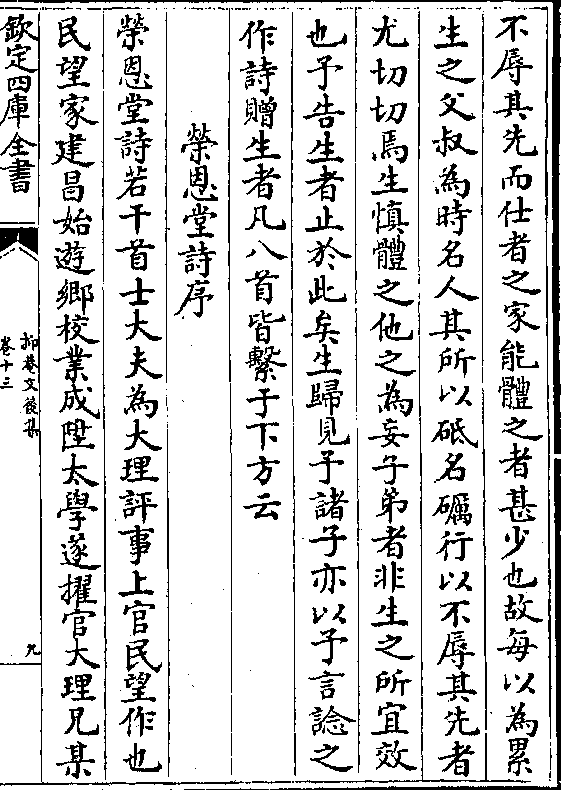 不辱其先而仕者之家能體之者甚少也故每以為累
生之父叔為時名人其所以砥名礪行以不辱其先者
尤切切焉生慎體之他之為妄子弟者非生之所宜效
也予告生者止於此矣生歸見予諸子亦以予言諗之
作詩贈生者凡八首皆繫于下方云
榮恩堂詩序
榮恩堂詩若干首士大夫為大理評事上官民望作也
民望家建昌始遊鄉校業成陞太學遂擢官大理兄某
欽定四庫全書
抑菴文後集
卷十三
九